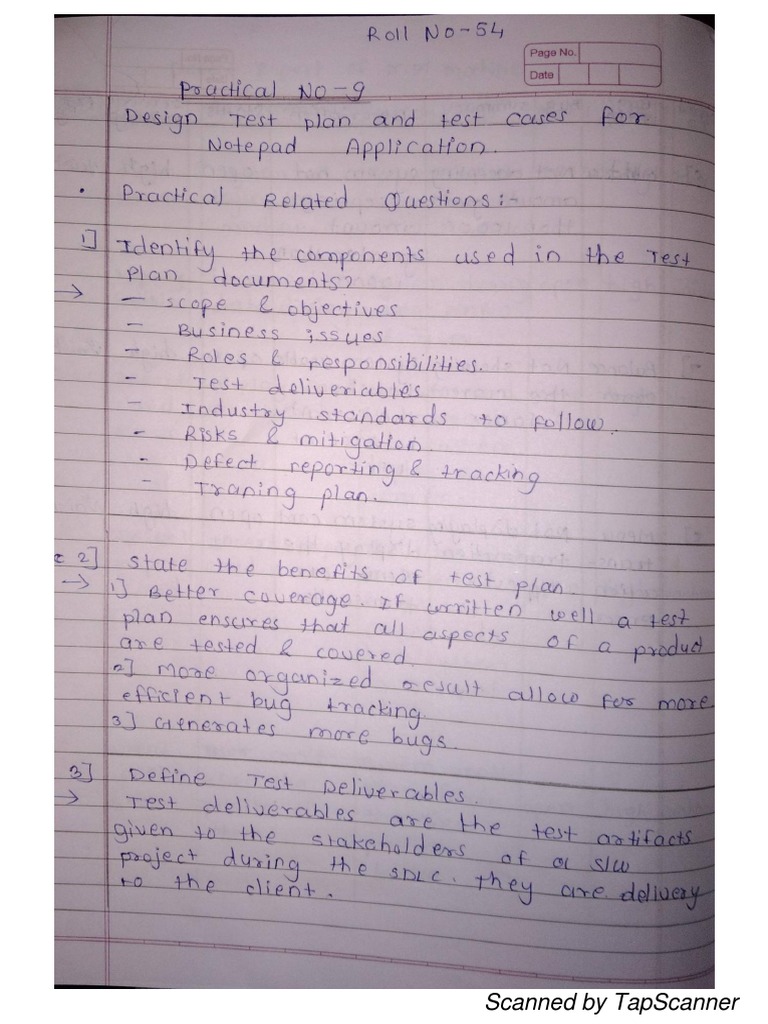 Roll No-54
Page No.
Date
Practical No-9
Design Test plan and test cases for
Notepad Application.
• Practical Related Questions:-
1] Identify the components used in the Test
plan documents?
→ - scope & objectives
- Business issues
- Roles & responsibilities.
- Test deliveriables
- Industry standards to follow.
- Risks & mitigation
- Defect reporting & tracking
- Traning plan.
2] State the benefits of test plan.
→ 1] Better coverage. If written well a test
plan ensures that all aspects of a product
are tested & covered.
2] More organized result allow for more
efficient bug tracking.
3] Generates more bugs.
3] Define Test Deliverables.
→ Test deliverables are the test artifacts
given to the stakeholders of a s/w
project during the SDLC. They are delivery
to the client.
Scanned by TapScanner